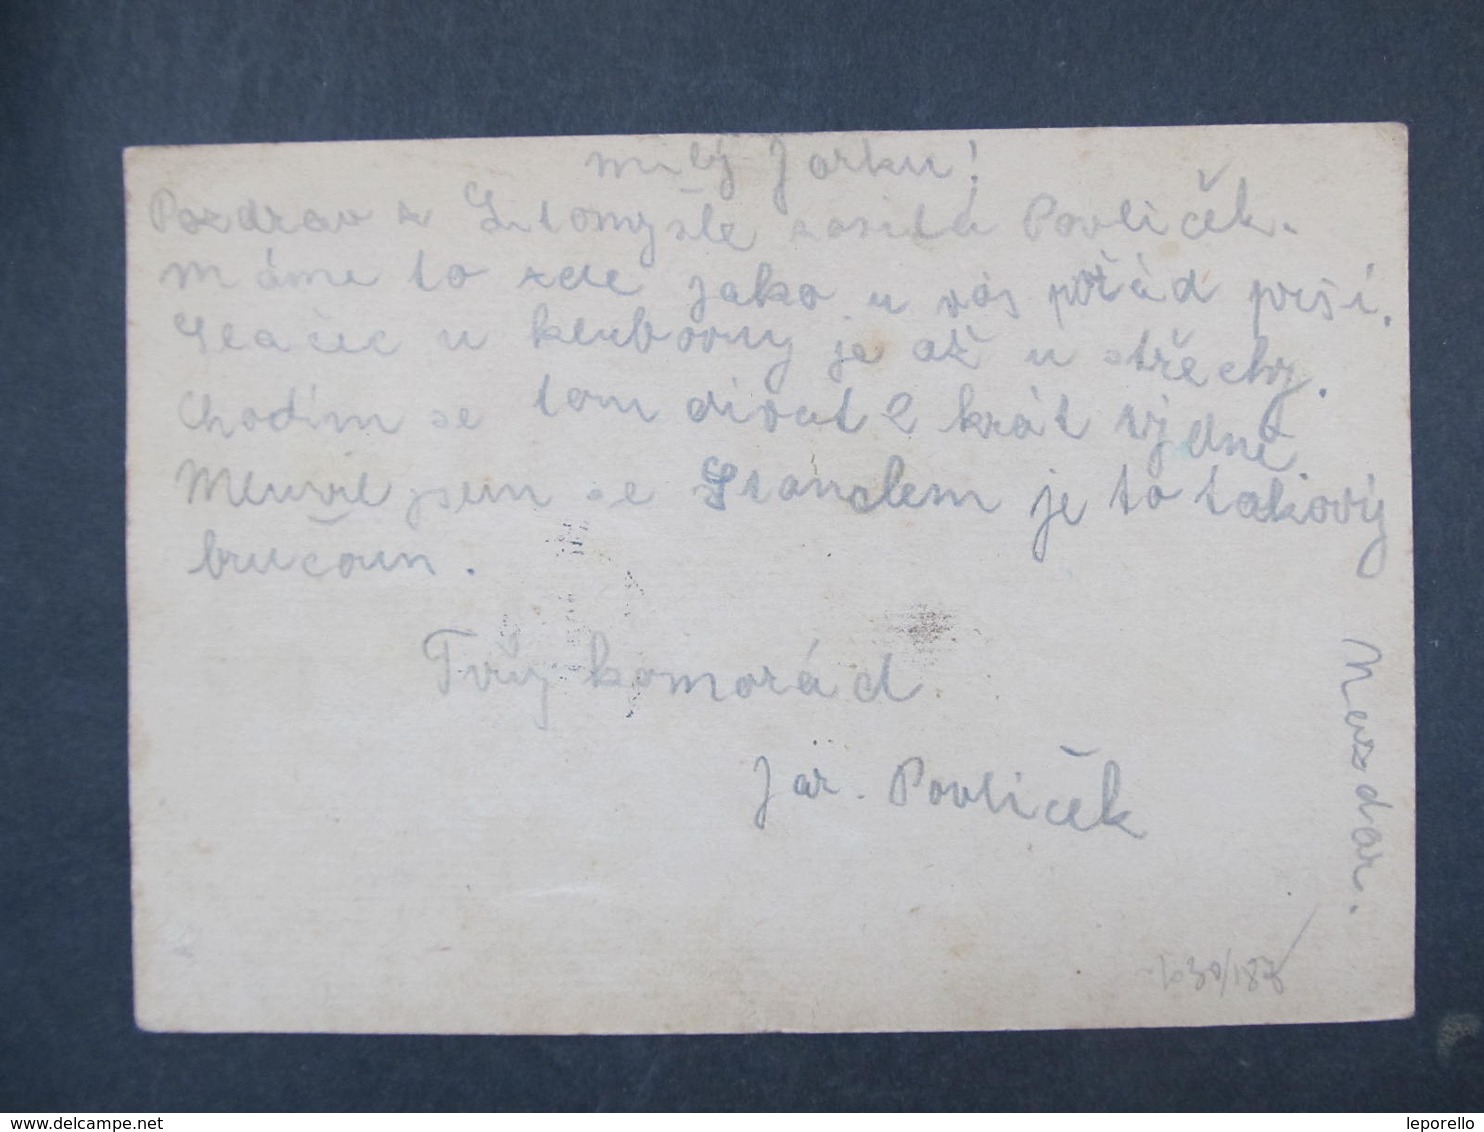 Milý Jarku!
Pozdrav z Litomyšle zasílá Pavlíček.
Máme to zde jako u vás pořád prší.
u klubovny je až u střechy.
Chodím se tam dívat krát dně
Mluvil jsem se Standem je to takový
bručoun.
Tvůj kamarád
Jar. Pavlíček
Nazdar.
1030/187
leporello